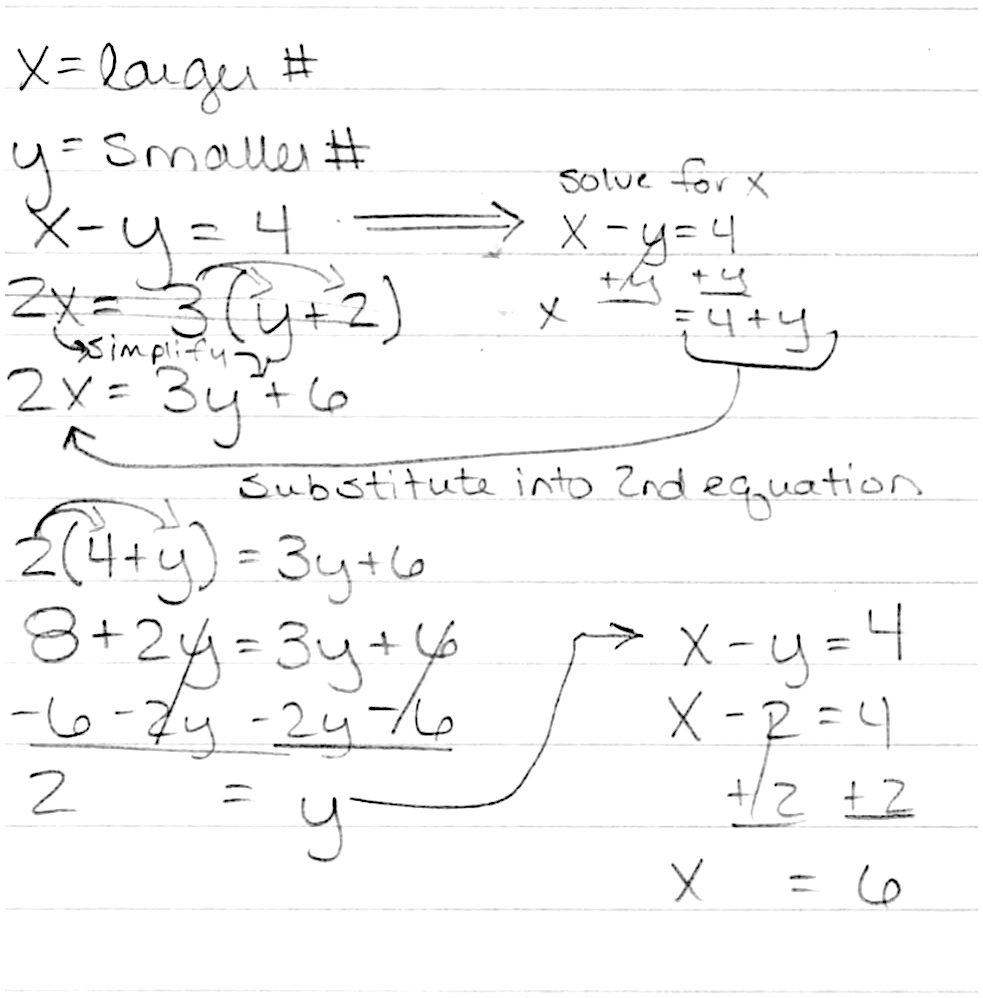 x = larger #
y = smaller #
x - y = 4 ⟹
2x = 3(y + 2)
simplify
2x = 3y + 6
solve for x
x - y = 4
+y +y
x = 4 + y
substitute into 2nd equation
2(4 + y) = 3y + 6
8 + 2y = 3y + 6
-6 - 2y - 2y - 6
2 = y
x - y = 4
x - 2 = 4
+2 +2
x = 6